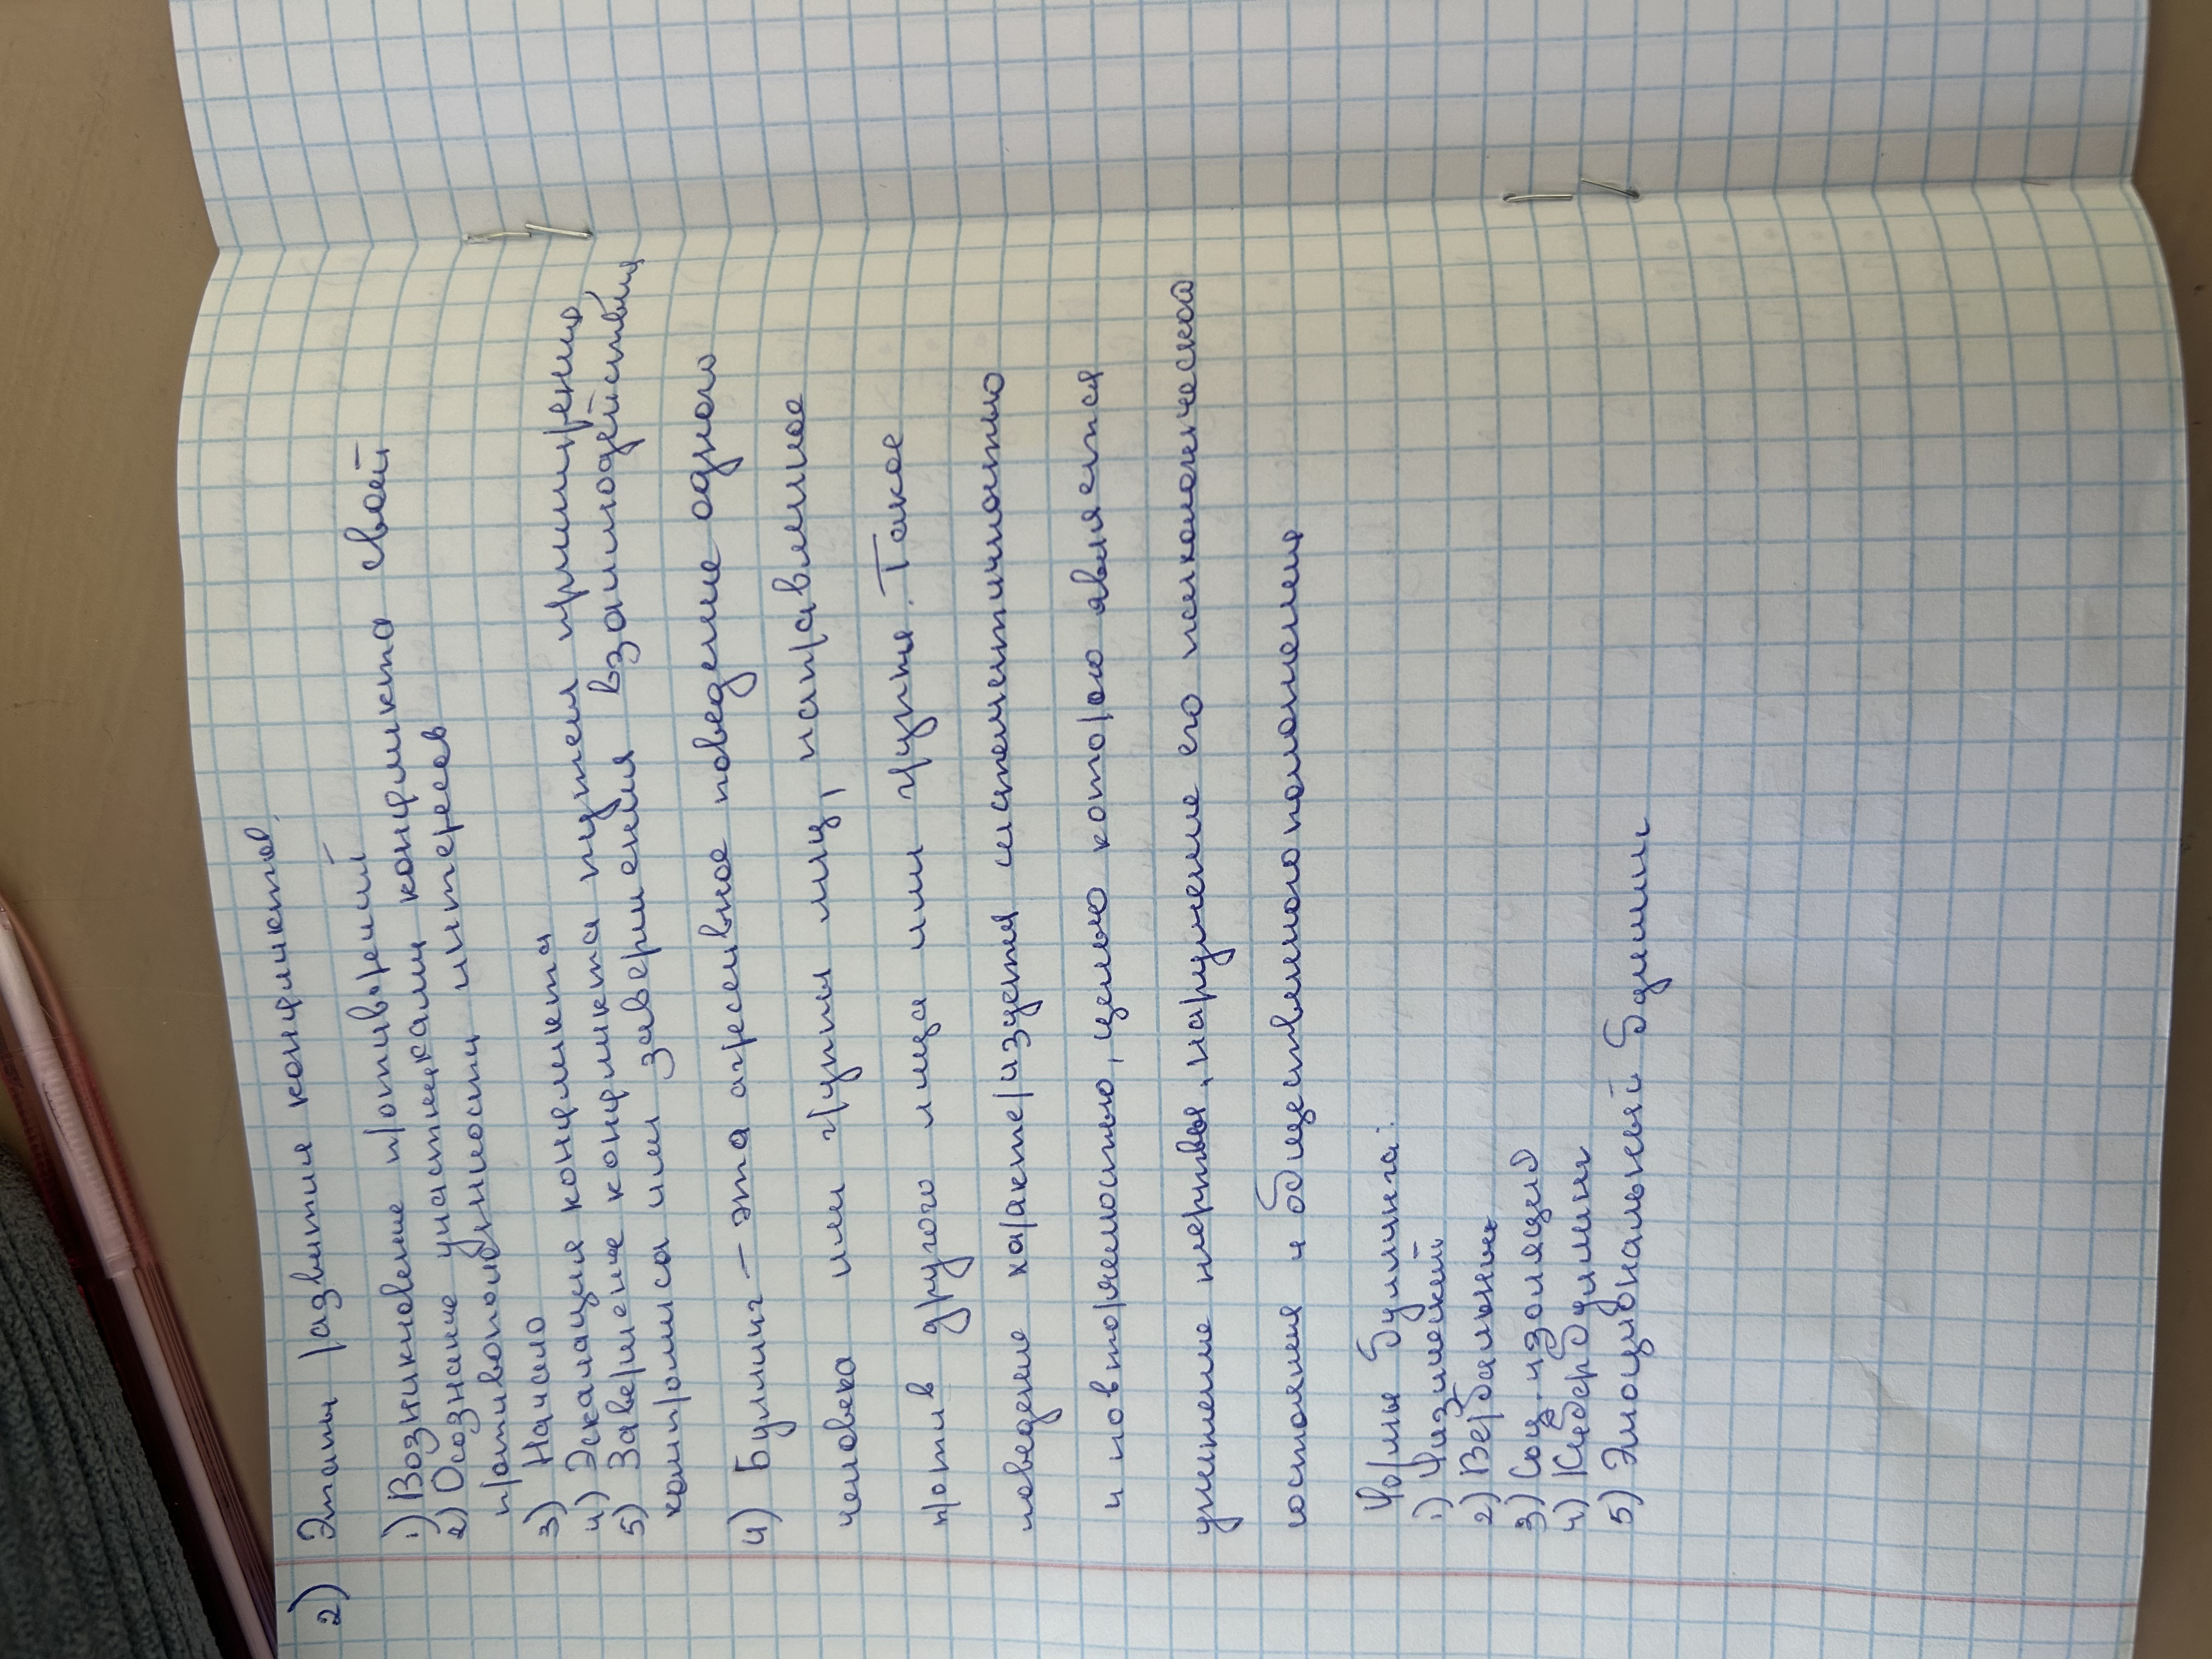 2) Этапы развития конфликтов.
1) Возникновение противоречий
2) Осознание участниками конфликта своей
противоположности интересов
3) Начало конфликта
4) Эскалация конфликта
5) Завершение конфликта путем примирения,
компромисса или завершения взаимодействия
4) Буллинг – это агресивное поведение одного
человека или групы лиц, направленное
против другого лица или групы. Такое
поведение характеризуется систематичностью
и повторяемостью, целью которого является
унижение жертвы, нарушение его психологического
состояния и общественного положения
Формы буллинга:
1) Физический
2) Вербальный
3) Соц. изоляция
4) Кибербуллинг
5) Эмоциональный буллинг